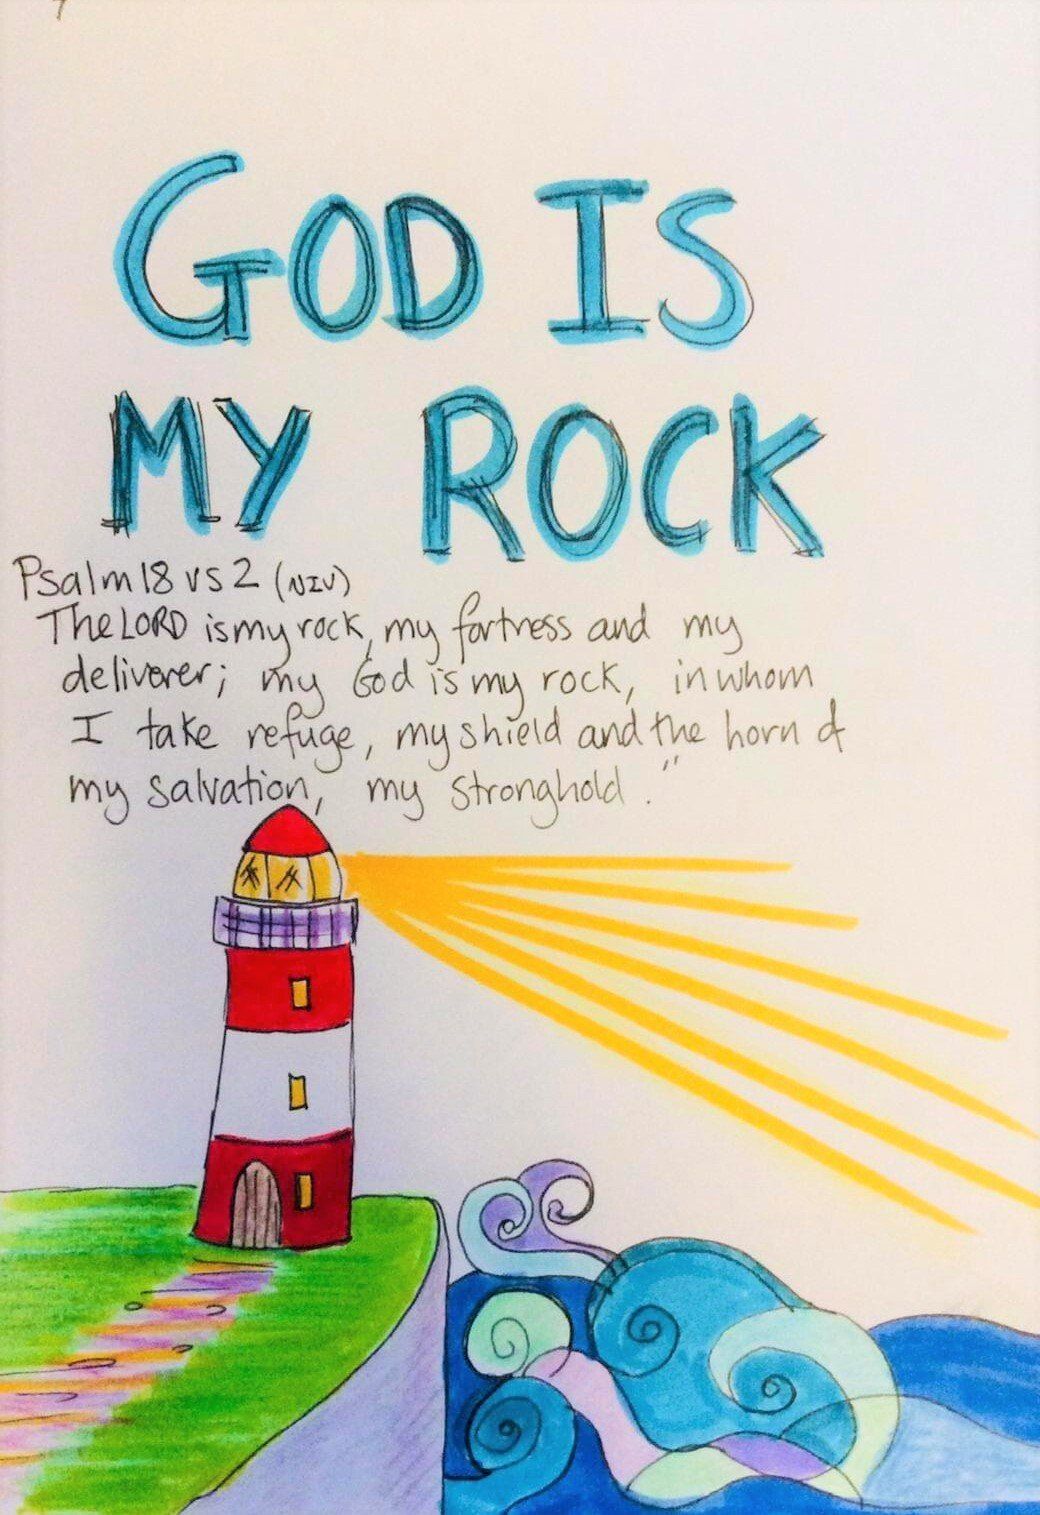 GOD IS
MY ROCK
Psalm 18 vs 2 (NIV)
The LORD is my rock, my fortress and my
deliverer; my God is my rock, in whom
I take refuge, my shield and the horn of
my salvation, my stronghold."